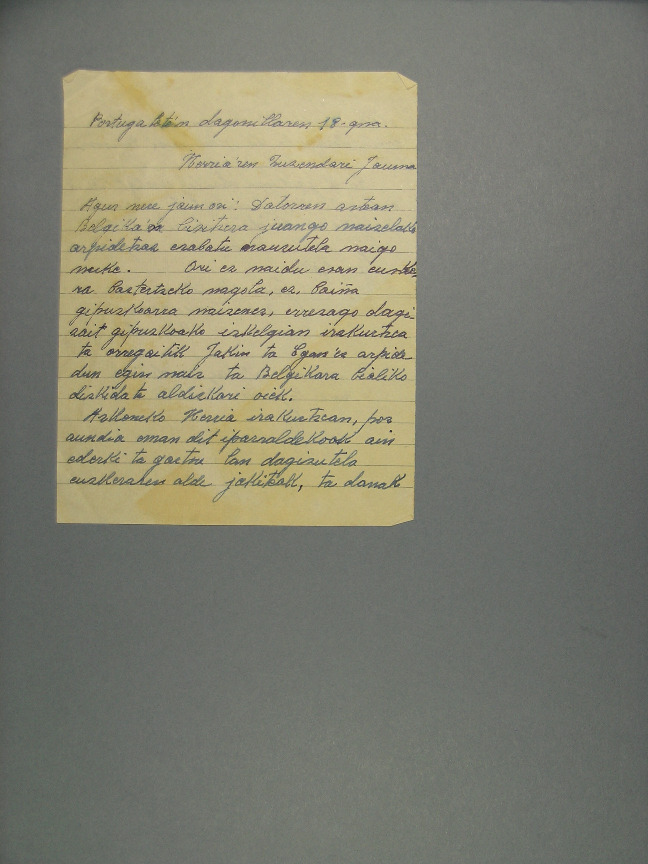 Portugaleten dagonillaren 18-gna.
Herria'ren Zuzendari Jauna
Agur nere jaun ori: Datorren astean
Belgika'ra bizitzera juango naizelako
arpidetzas ezabatu nauzutela naigo
nuke. Ori ez naidu esan euske-
ra baztertzeko nagola, ez, baiña
gipuzkoarra naizenez, errezago dagi-
zait gipuzkoako izkelgian irakurtzea
ta orregaitik Jakin ta Egan'ez arpide
dun egin naiz ta Belgikara bialiko
dizkidate aldizkari oiek.
Azkeneko Herria irakurtzean, poz
aundia eman dit iparraldekook ain
ederki ta gartsu lan dagizutela
euskeraren alde jakiteak, ta danak